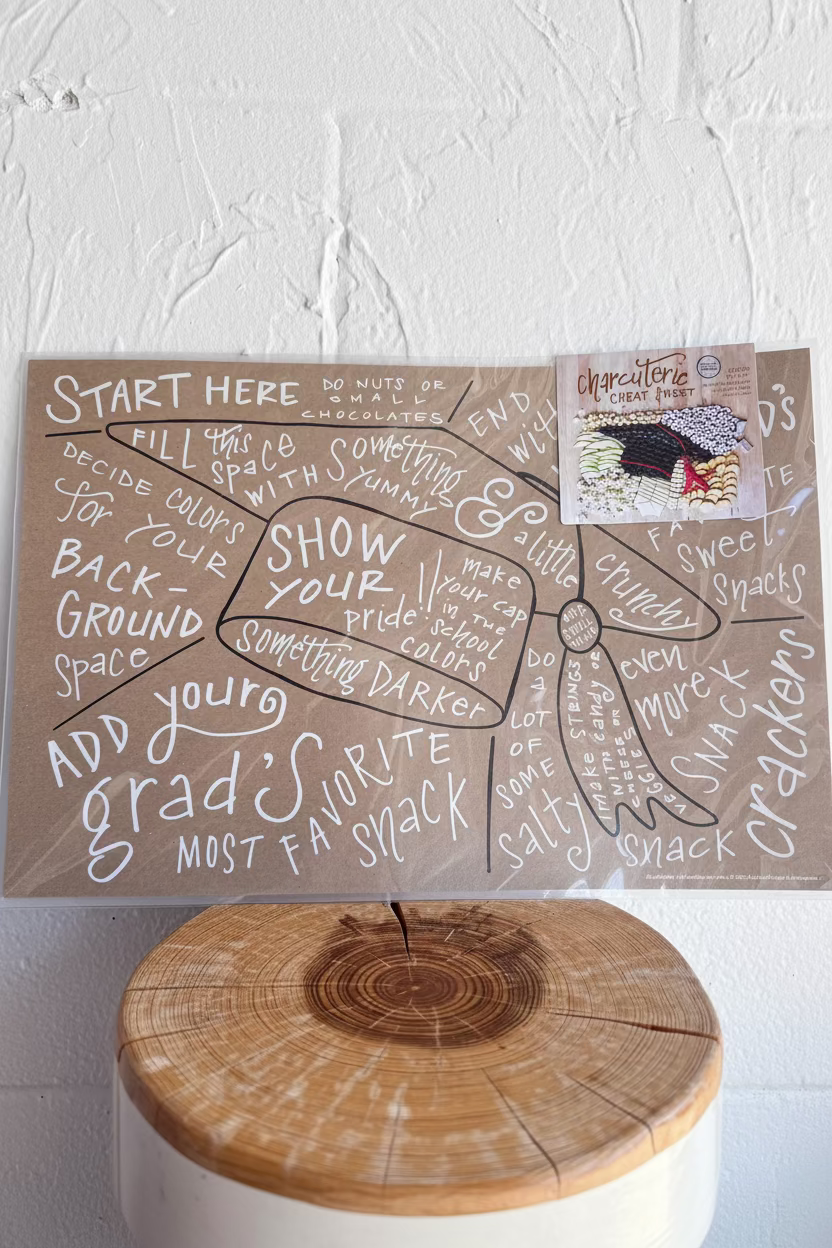 START HERE
DO NUTS OR
SMALL
CHOCOLATES
END
with
D'S
TE
FA
sweet
snacks
charcuterie
CHEAT SHEET
DECIDE colors
for YOUR
BACK-
GROUND
space
FILL this
space
WITH something
YUMMY
& a little
crunchy
SHOW
YOUR
pride!!
make
your cap
in THE
school
colors
something DARKER
ADD your
grad's
MOST FAVORITE
snack
DO
a
LOT
OF
SOME
salty
make STRINGS
WITH candy OR
even
more
SNACK
crackers
snack